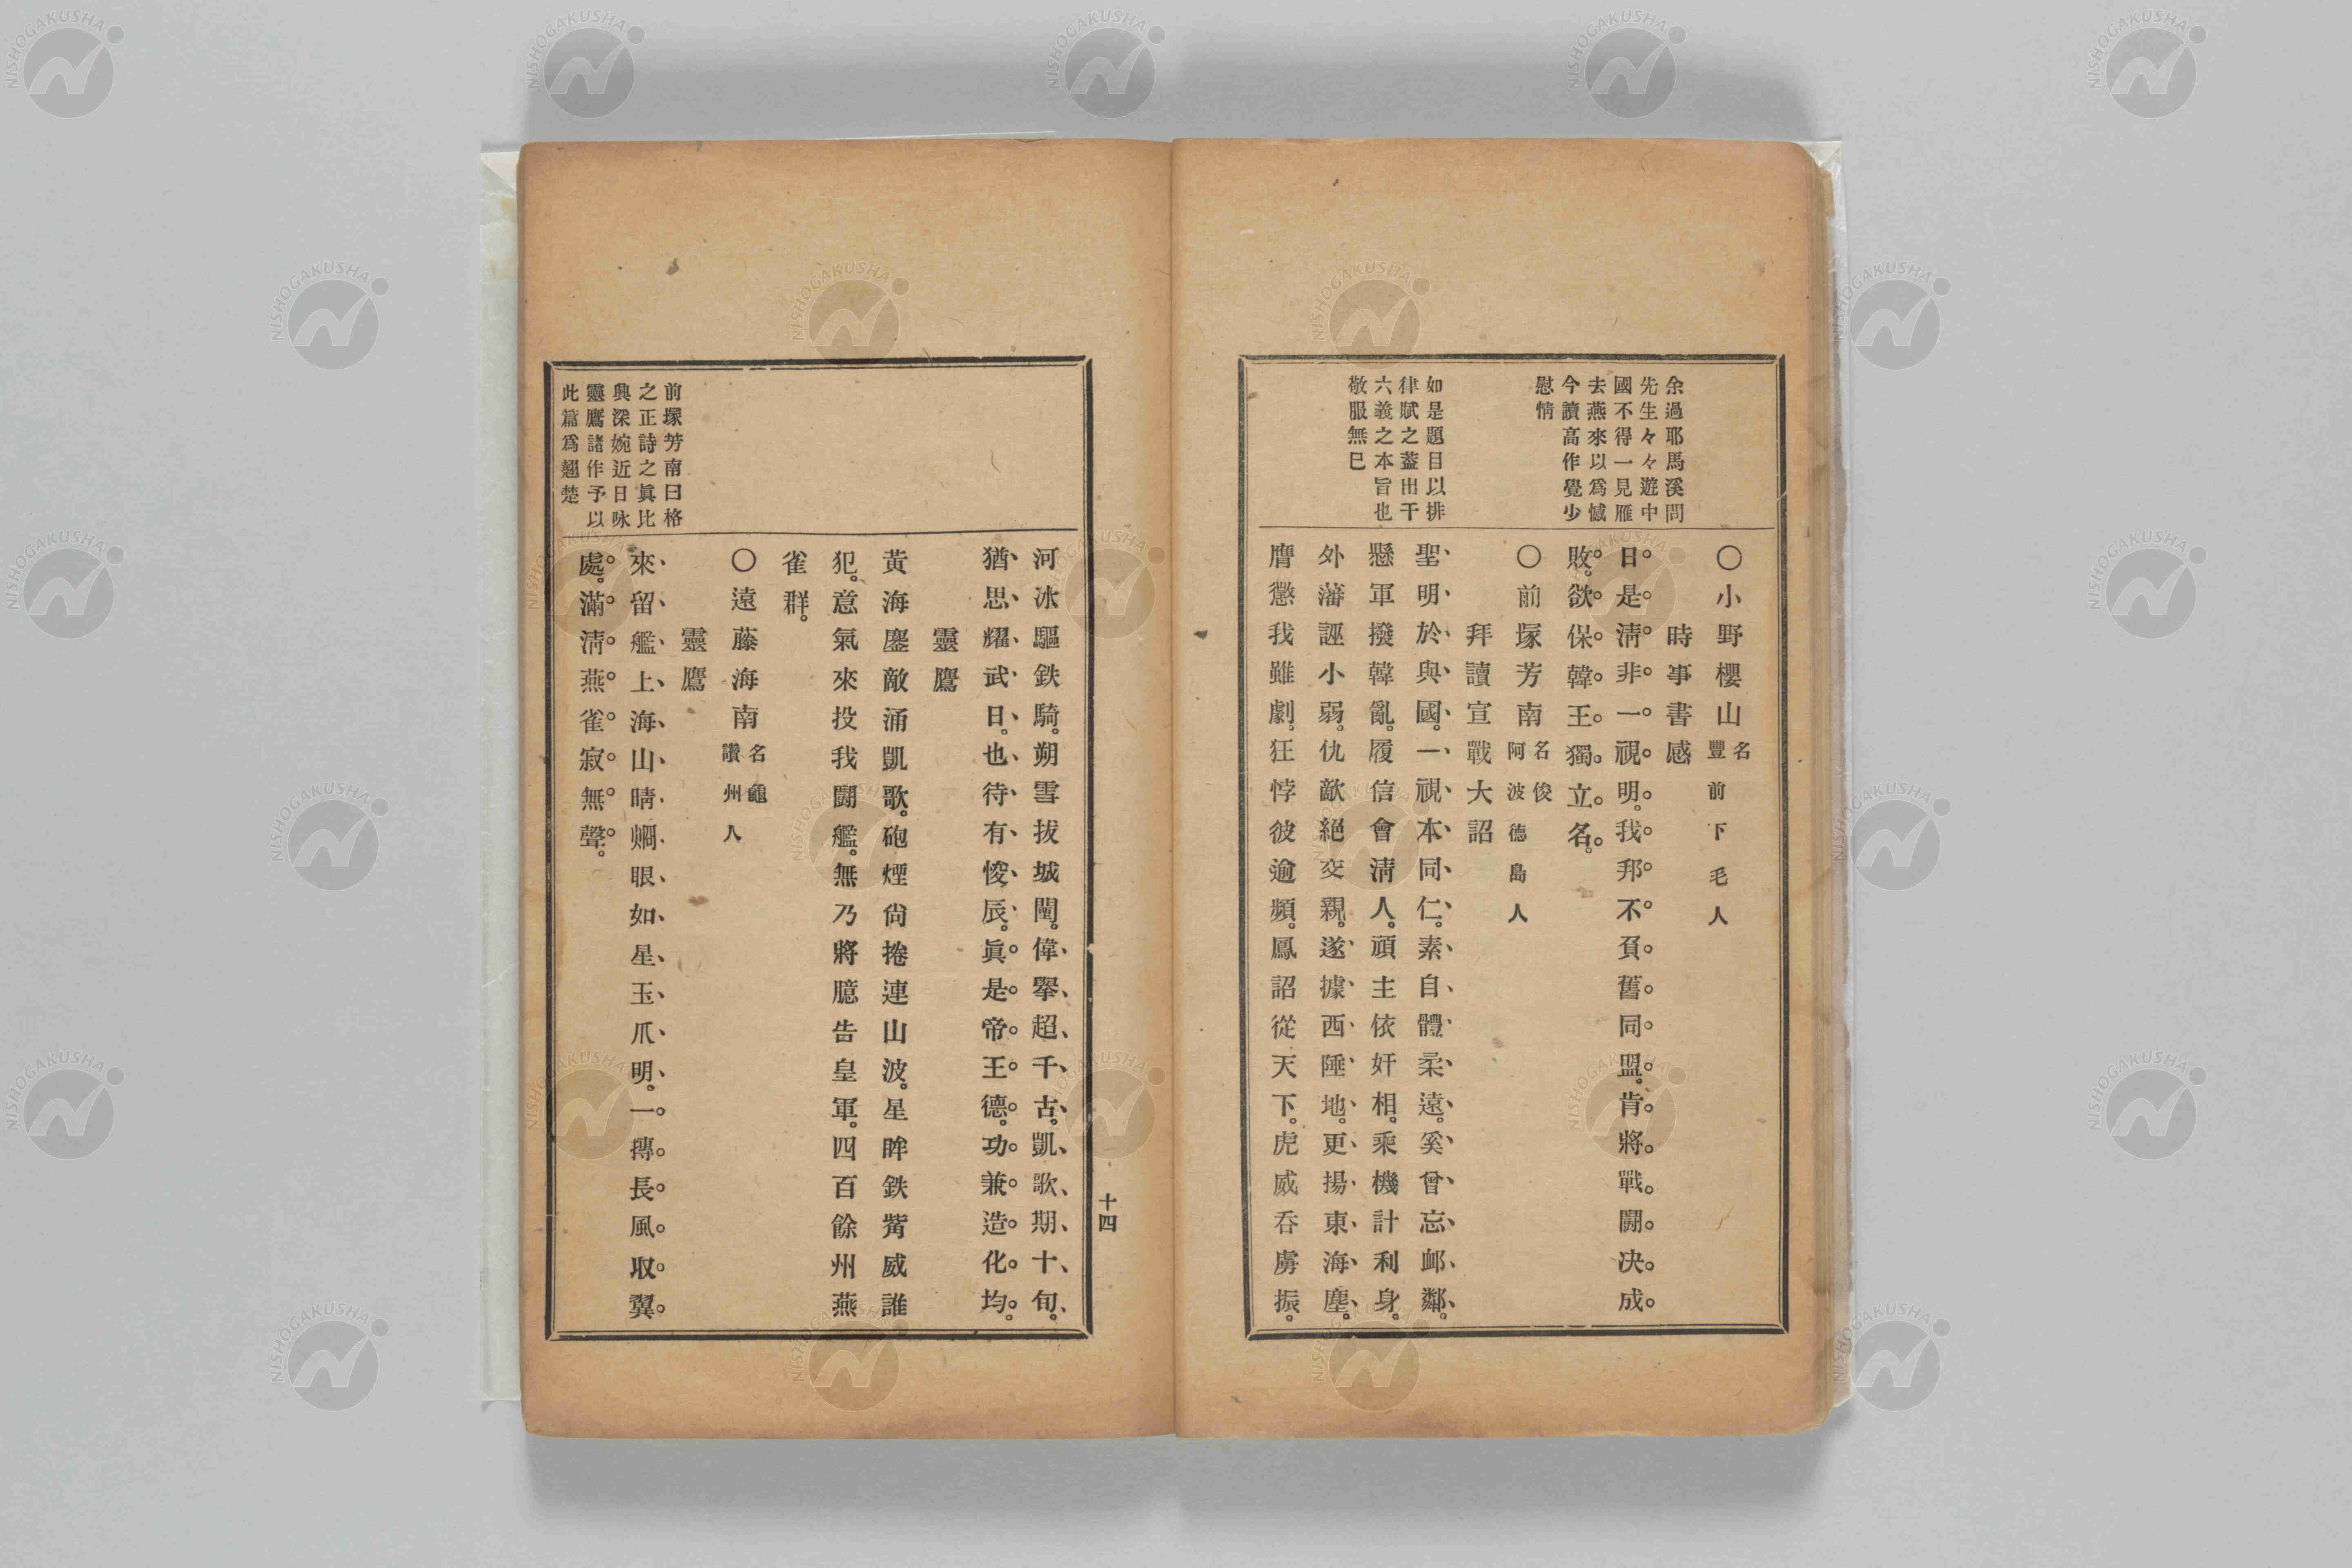 余過耶馬溪問
先生々々遊中
國不得一見雁
去燕來以爲憾
今讀高作覺少
慰情
如是題目以排
律賦之蓋出干
六義之本旨也
敬服無巳
〇小野櫻山 名 豐前下毛人
時事書感
日是淸非一視明。我邦不負舊同盟。肯將戰鬪决成
敗。欲保韓王獨立名。
〇前塚芳南 名俊 阿波德島人
拜讀宣戰大詔
聖明於與國。一視本同仁。素自體柔遠。奚曾忘卹鄰。
懸軍撥韓亂。履信會淸人。頑主依奸相。乘機計利身。
外藩誣小弱。仇敵絕交親。遂據西陲地。更揚東海塵。
膺懲我雖劇。狂悖彼逾頻。鳳詔從天下。虎威呑虜振。
十四
河冰驅鉄騎。朔雪拔城闉。偉擧超千古。凱歌期十旬。
猶思耀武日。也待有悛辰。眞是帝王德。功兼造化均。
靈鷹
黃海鏖敵涌凱歌。砲煙尙捲連山波。星眸鉄觜威誰
犯。意氣來投我鬪艦。無乃將臆告皇軍。四百餘州燕
雀群。
〇遠藤海南 名龜 讚州人
靈鷹
來留艦上海山晴。烱眼如星玉爪明。一摶長風取翼
處。滿淸燕雀寂無聲。
前塚芳南曰格
之正詩之眞比
興深婉近日咏
靈鷹諸作予以
此篇爲翹楚
NISHOGAKUSHA